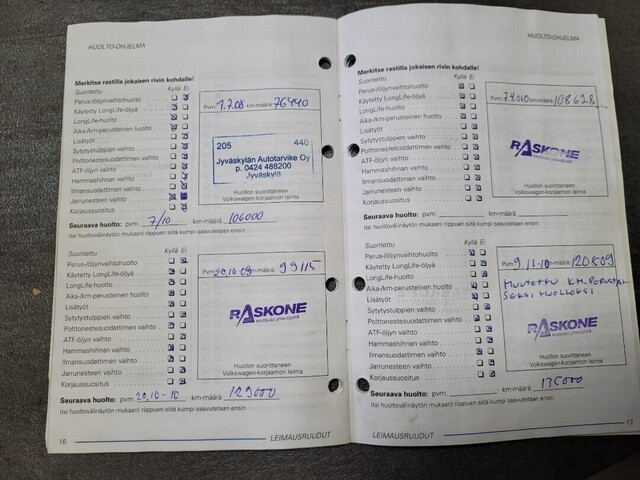 HUOLTO-OHJELMA
Merkitse rastilla jokaisen rivin kohdalle!
Suoritettu Kyllä Ei
Perus-/öljynvaihtohuolto
Käytetty LongLife-öljyä
LongLife-huolto
Aika-/km-perusteinen huolto
Lisätyöt
Sytytystulppien vaihto
Polttonestesuodattimen vaihto
ATF-öljyn vaihto
Hammashihnan vaihto
Ilmansuodattimen vaihto
Jarrunesteen vaihto
Korjaussuositus
Pvm 1.7.08 km-määrä 76440
205 440
Jyväskylän Autotarvike Oy
p. 0424 488200
Jyväskylä
Huollon suorittaneen
Volkswagen-korjaamon leima
Seuraava huolto: pvm. 7/10 km-määrä 106000
Itai huoltovälinäytön mukaani riippuen siitä kumpi saavutetaan ensin
Suoritettu Kyllä Ei
Perus-/öljynvaihtohuolto
Käytetty LongLife-öljyä
LongLife-huolto
Aika-/km-perusteinen huolto
Lisätyöt
Sytytystulppien vaihto
Polttonestesuodattimen vaihto
ATF-öljyn vaihto
Hammashihnan vaihto
Ilmansuodattimen vaihto
Jarrunesteen vaihto
Korjaussuositus
Pvm 20.10.09 km-määrä 99115
RASKONE
Huollon suorittaneen
Volkswagen-korjaamon leima
Seuraava huolto: pvm 20.10-10 km-määrä 129000
Itai huoltovälinäytön mukaani riippuen siitä kumpi saavutetaan ensin
16 LEIMAUSRUUDUT
HUOLTO-OHJELMA
Merkitse rastilla jokaisen rivin kohdalle!
Suoritettu Kyllä Ei
Perus-/öljynvaihtohuolto
Käytetty LongLife-öljyä
LongLife-huolto
Aika-/km-perusteinen huolto
Lisätyöt
Sytytystulppien vaihto
Polttonestesuodattimen vaihto
ATF-öljyn vaihto
Hammashihnan vaihto
Ilmansuodattimen vaihto
Jarrunesteen vaihto
Korjaussuositus
Pvm km-määrä 108628
RASKONE
Huollon suorittaneen
Volkswagen-korjaamon leima
Seuraava huolto: pvm. km-määrä
Itai huoltovälinäytön mukaani riippuen siitä kumpi saavutetaan ensin
Suoritettu Kyllä Ei
Perus-/öljynvaihtohuolto
Käytetty LongLife-öljyä
LongLife-huolto
Aika-/km-perusteinen huolto
Lisätyöt
Sytytystulppien vaihto
Polttonestesuodattimen vaihto
ATF-öljyn vaihto
Hammashihnan vaihto
Ilmansuodattimen vaihto
Jarrunesteen vaihto
Korjaussuositus
Pvm 9.11-10 km-määrä 120809
MUUTETTU KM.PERUSTAI
SEKSI HUOLLOKSI
RASKONE
Huollon suorittaneen
Volkswagen-korjaamon leima
Seuraava huolto: pvm. km-määrä 135000
Itai huoltovälinäytön mukaani riippuen siitä kumpi saavutetaan ensin
LEIMAUSRUUDUT 17